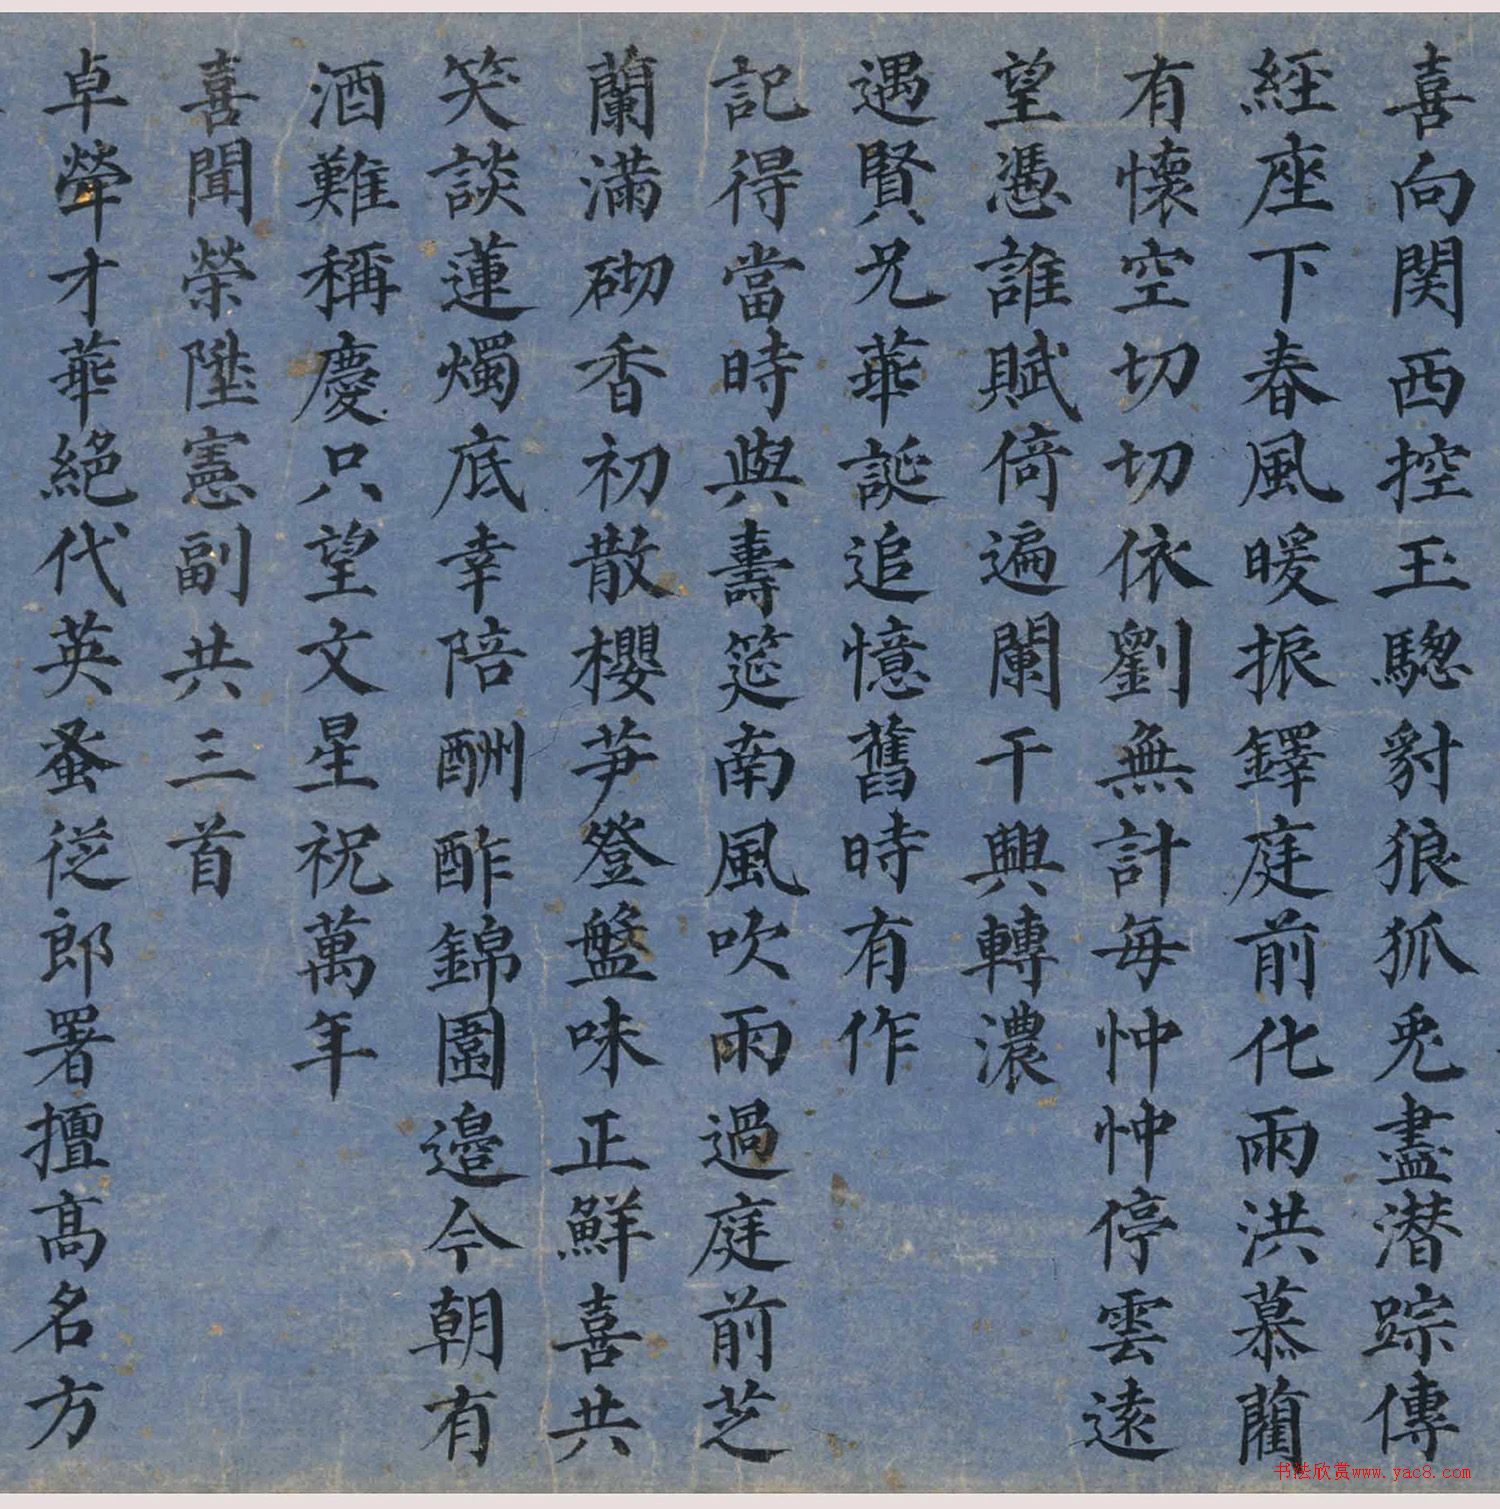 喜向関西控玉驄豺狼狐兎盡潜踪傳
經座下春風暖振鐸庭前化雨洪慕藺
有懐空切切依劉無計每忡忡停雲遠
望憑誰賦倚遍闌干興轉濃
遇賢兄華誕追憶舊時有作
記得當時與壽筵南風吹雨過庭前芝
蘭滿砌香初散櫻笋登盤味正鮮喜共
笑談蓮燭底幸陪酬酢錦園邉今朝有
酒難稱慶只望文星祝萬年
喜聞榮陞憲副共三首
卓犖才華絕代英蚤従郎署擅髙名方
书法欣赏www.yac8.com